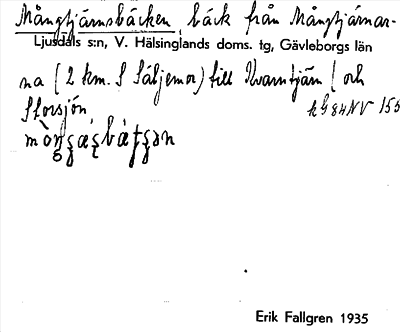 Mångtjärnsbäcken, bäck från Mångtjärnar-
Ljusdals s:n, V. Hälsinglands doms. tg, Gävleborgs län
na (2 km. S Säljemor) till Kvarntjärn ( och
Storsjön.
kG 84 NV 155
Erik Fallgren 1935